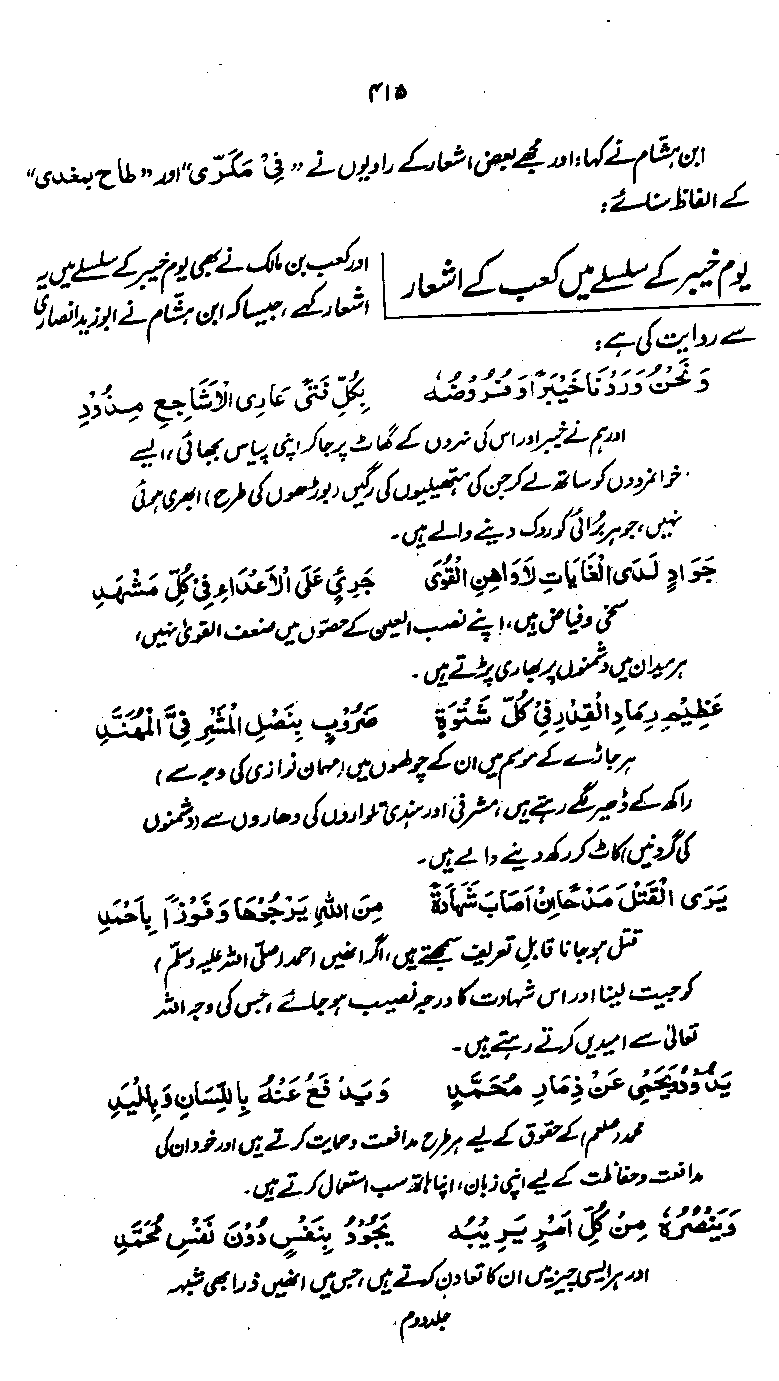 ۴۱۵
ابن ہشام نے کہا: اور مجھے بعض اشعار کے راویوں نے "فِیْ مَکَرِّی" اور "طاح بغدی"
کے الفاظ سنائے:
یوم خیبر کے سلسلے میں کعب کے اشعار
اور کعب بن مالک نے بھی یوم خیبر کے سلسلے میں یہ
اشعار کہے، جیسا کہ ابن ہشام نے ابوزید انصاری
سے روایت کی ہے:
وَنَحْنُ وَرَدْنَا خَيْبَرًا وَفُرُوْضَهُ بِكُلِّ فَتًى عَارِى الْاَشَاجِعِ مِذْوَدِ
اور ہم نے خیبر اور اس کی نہروں کے گھاٹ پر جا کر اپنی پیاس بجھائی، ایسے
جوانمردوں کو ساتھ لے کر جن کی ہتھیلیوں کی رگیں (بوڑھوں کی طرح) ابھری ہوئی
نہیں، جو ہر برائی کو روک دینے والے ہیں۔
جَوَادٍ لَدَى الْغَايَاتِ لَا وَاهِنِ الْقُوَى جَرِيْءٍ عَلَى الْاَعْدَاءِ فِيْ كُلِّ مَشْهَدِ
سخی و فیاض ہیں، اپنے نصب العین کے حصوں میں ضعف القویٰ نہیں،
ہر میدان میں دشمنوں پر بھاری پڑتے ہیں۔
عَظِيْمِ رِمَادِ الْقِدْرِ فِيْ كُلِّ شَتْوَةٍ ضَرُوْبٍ بِنَصْلِ الْمَشْرَفِيِّ الْمُهَنَّدِ
ہر جاڑے کے موسم میں ان کے چولھوں میں (مہمان نوازی کی وجہ سے)
راکھ کے ڈھیر لگے رہتے ہیں، مشرفی اور ہندی تلواروں کی دھاروں سے (دشمنوں
کی گردنیں) کاٹ کر رکھ دینے والے ہیں۔
يَرَى الْقَتْلَ مَدْحًا اِنْ اَصَابَ شَهَادَةً مِنَ اللّٰهِ يَرْجُوْهَا وَفَوْزًا بِاَحْمَدِ
قتل ہو جانا قابلِ تعریف سمجھتے ہیں، اگر انھیں احمد (صلی اللہ علیہ وسلم)
کو جیت لینا اور اس شہادت کا درجہ نصیب ہو جائے، جس کی وجہ اللہ
تعالیٰ سے امیدیں کرتے رہتے ہیں۔
يَذُوْدُ وَيَحْمِيْ عَنْ ذِمَارِ مُحَمَّدٍ وَيَدْفَعُ عَنْهُ بِاللِّسَانِ وَبِالْيَدِ
محمد (صلعم) کے حقوق کے لیے ہر طرح مدافعت و حمایت کرتے ہیں اور خود ان کی
مدافعت و حفاظت کے لیے اپنی زبان، اپنا ہاتھ سب استعمال کرتے ہیں۔
وَيَنْصُرُهُ مِنْ كُلِّ اَمْرٍ يَرِيْبُهُ يَجُوْدُ بِنَفْسٍ دُوْنَ نَفْسِ مُحَمَّدِ
اور ہر ایسی چیز میں ان کا تعاون کرتے ہیں، جس میں انھیں ذرا بھی شبہہ
جلد دوم